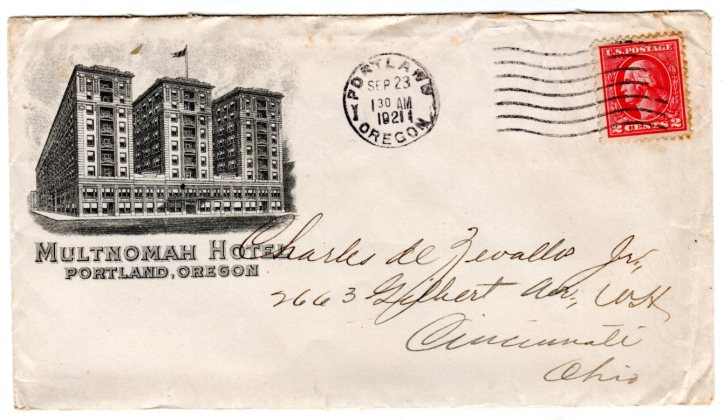 PORTLAND
SEP 23
1 30 AM
1921
OREGON
U.S. POSTAGE
2 CENTS 2
MULTNOMAH HOTEL
PORTLAND, OREGON
Charles de Zevallos Jr.,
2663 Gilbert Av., W.H.
Cincinnati
Ohio